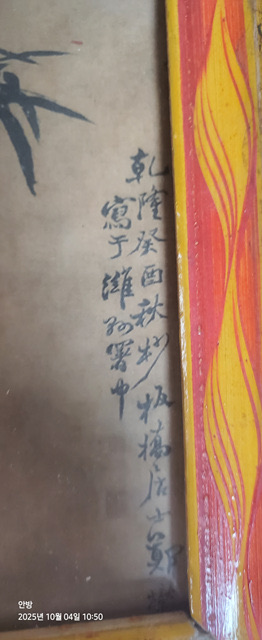 乾隆癸酉秋杪板橋居士鄭
寫于濰縣署中
안방
2025년 10월 04일 10:50